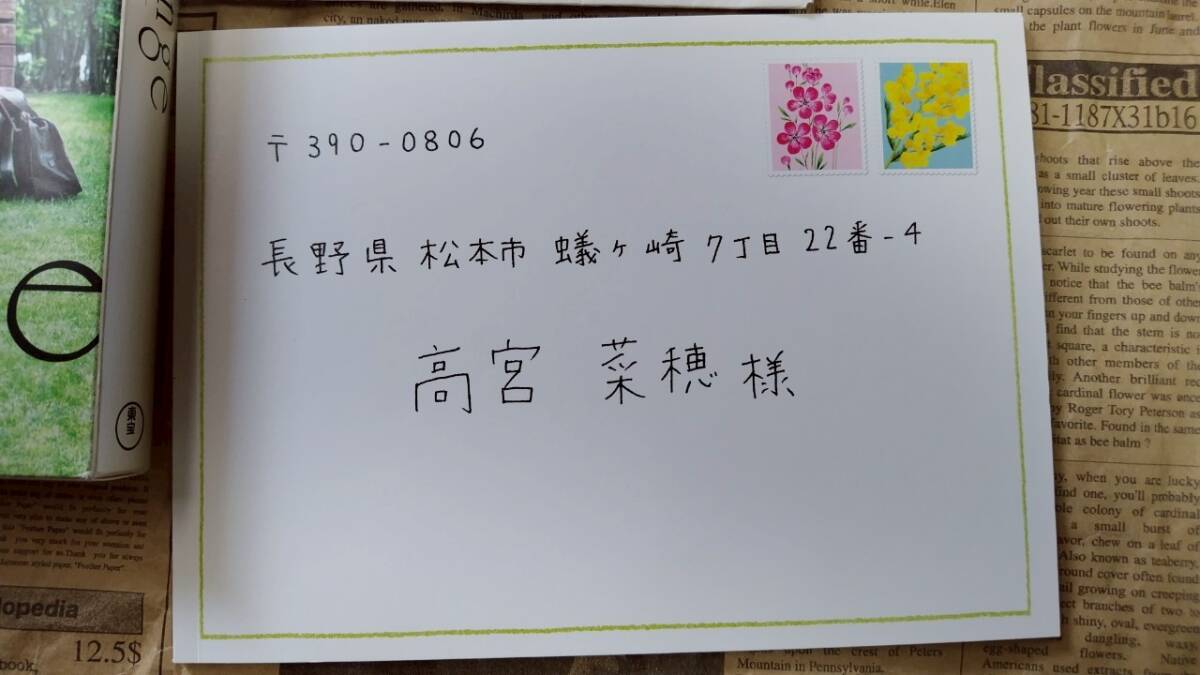 nge
e
東宝
〒390-0806
長野県 松本市 蟻ヶ崎 7丁目 22番-4
高宮 菜穂 様
small capsules on the mountain laurel
the plant flowers in June and
Classified
81-1187X31b16
shoots that rise above the
as a small cluster of leaves.
owing year these small shoots
into mature flowering plants
out their own shoots.
scarlet to be found on any
er. While studying the flower
notice that the bee balm's
ifferent from those of other
n your fingers up and down
find that the stem is no
square, a characteristic
th other members of the
Another brilliant red
cardinal flower was once
by Roger Tory Peterson as
favorite. Found in the same
tat as bee balm ?
, when you are lucky
find one, you'll probably
ole colony of cardinal
a small burst of
avor, chew on a leaf of
Also known as teaberry,
round cover often found
ail growing on creeping
ct branches of two
shiny, oval, evergreen
dangling, waxy,
egg-shaped flowers. Native
Americans used extracts from
upon the crest of Peters
Mountain in Pennsylvania.
lopedia
12.5$
book,